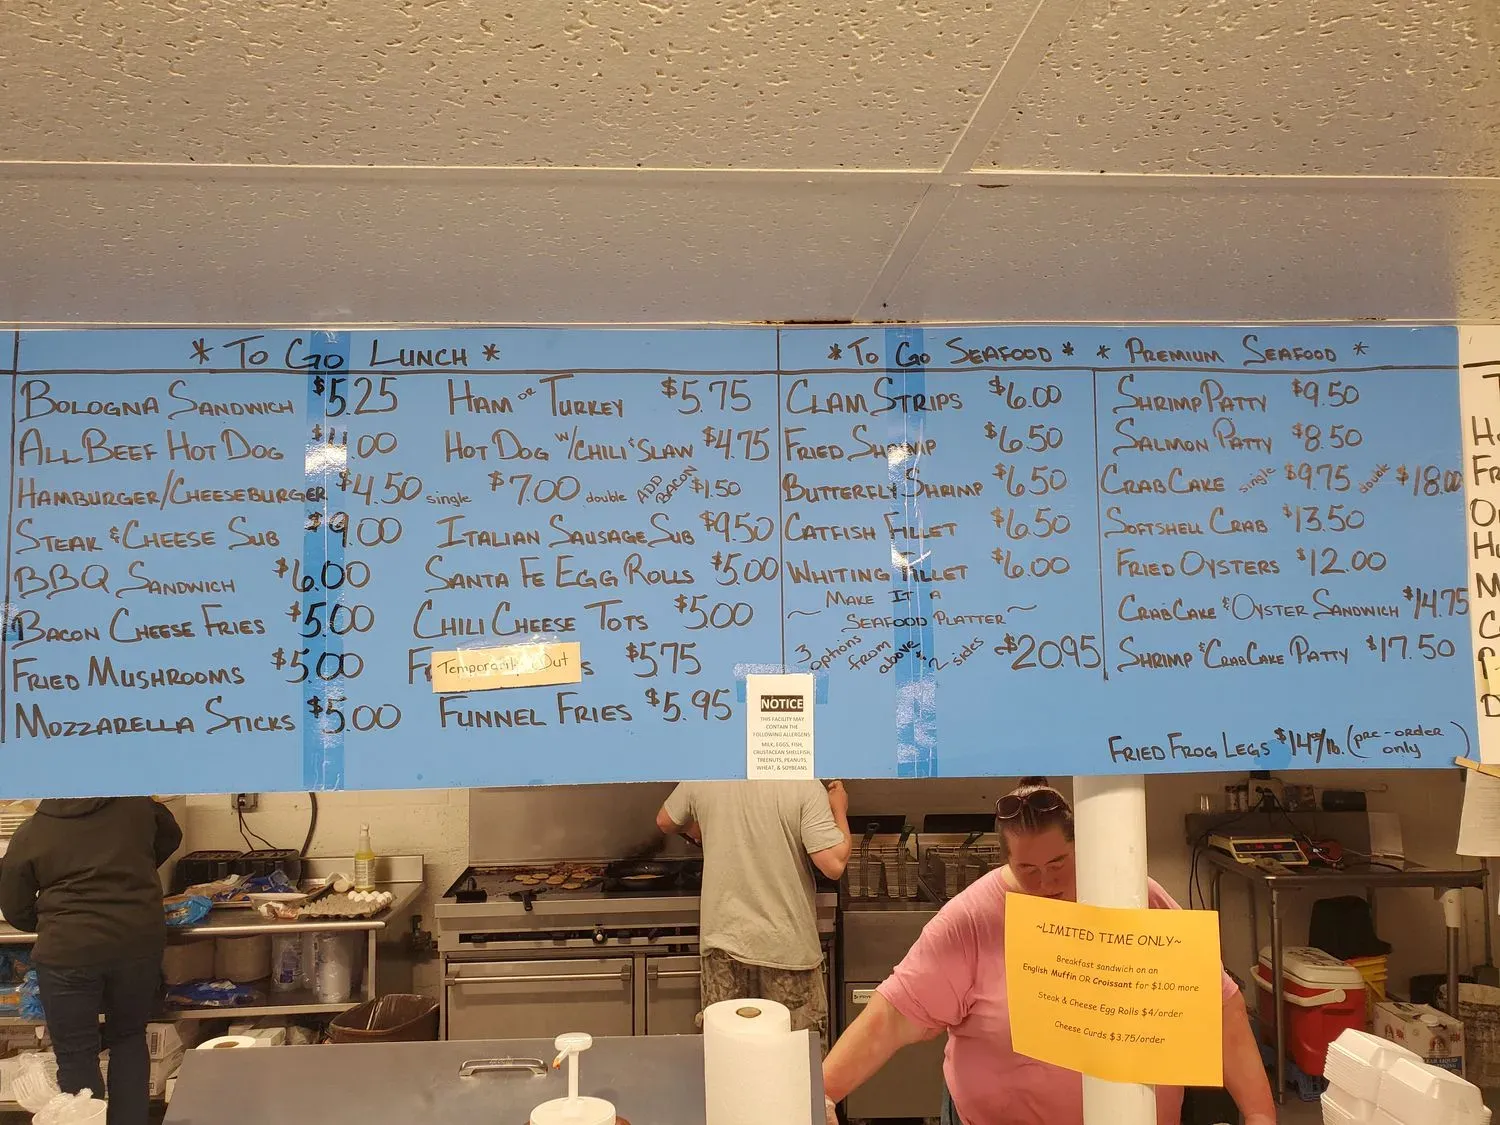 * To Go Lunch *
Bologna Sandwich $5.25
All Beef Hot Dog $4.00
Hamburger/Cheeseburger $4.50 single $7.00 double Add Bacon $1.50
Steak & Cheese Sub $9.00
BBQ Sandwich $6.00
Bacon Cheese Fries $5.00
Fried Mushrooms $5.00
Mozzarella Sticks $5.00
Ham or Turkey $5.75
Hot Dog w/Chili & Slaw $4.75
Italian Sausage Sub $9.50
Santa Fe Egg Rolls $5.00
Chili Cheese Tots $5.00
Temporarily Out $5.75
Funnel Fries $5.95
* To Go Seafood *
Clam Strips $6.00
Fried Shrimp $6.50
Butterfly Shrimp $6.50
Catfish Fillet $6.50
Whiting Fillet $6.00
~ Make It A
Seafood Platter ~
3 options from above & 2 sides $20.95
* Premium Seafood *
Shrimp Patty $9.50
Salmon Patty $8.50
Crab Cake single $9.75 double $18.00
Softshell Crab $13.50
Fried Oysters $12.00
Crab Cake & Oyster Sandwich $14.75
Shrimp & Crab Cake Patty $17.50
Fried Frog Legs (pre-order only)
NOTICE
THIS FACILITY MAY
CONTAIN THE
FOLLOWING ALLERGENS
MILK, EGGS, FISH,
CRUSTACEAN SHELLFISH,
TREENUTS, PEANUTS,
WHEAT, & SOYBEANS
~LIMITED TIME ONLY~
Breakfast sandwich on an
English Muffin OR Croissant for $1.00 more
Steak & Cheese Egg Rolls $4/order
Cheese Curds $3.75/order